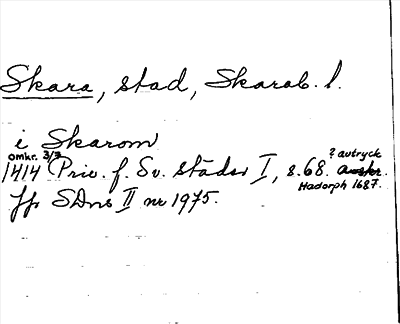 Skara, stad, Skarab. l.
i Skarom
omkr. 3/3 ? avtryck
1414 Priv. f. Sv. städer I, s. 68.
Hadorph 1687.
Jfr SDns II nr 1975.